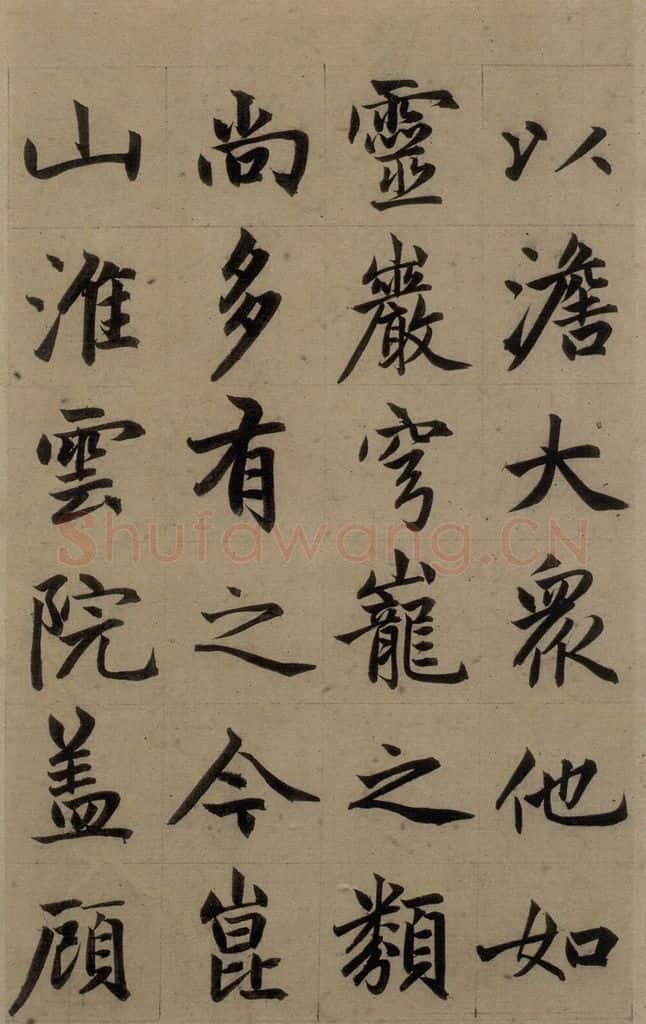 以澹大眾他如
靈巖穹巃之類
尚多有之今崑
山淮雲院盖顧
Shufawang.CN